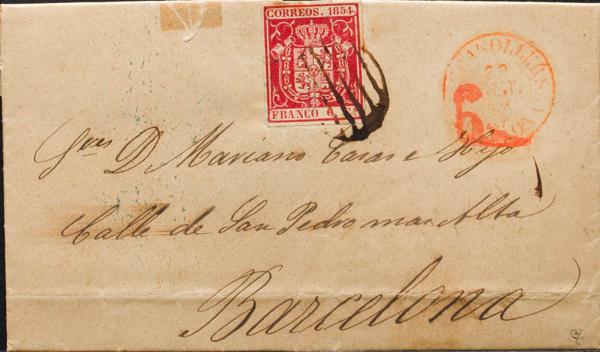 CORREOS. 1854.
FRANCO 6
GRANOLLERS
6
Sres D. Mariano Casas e Hijo
Calle de San Pedro mas Alta
Barcelona